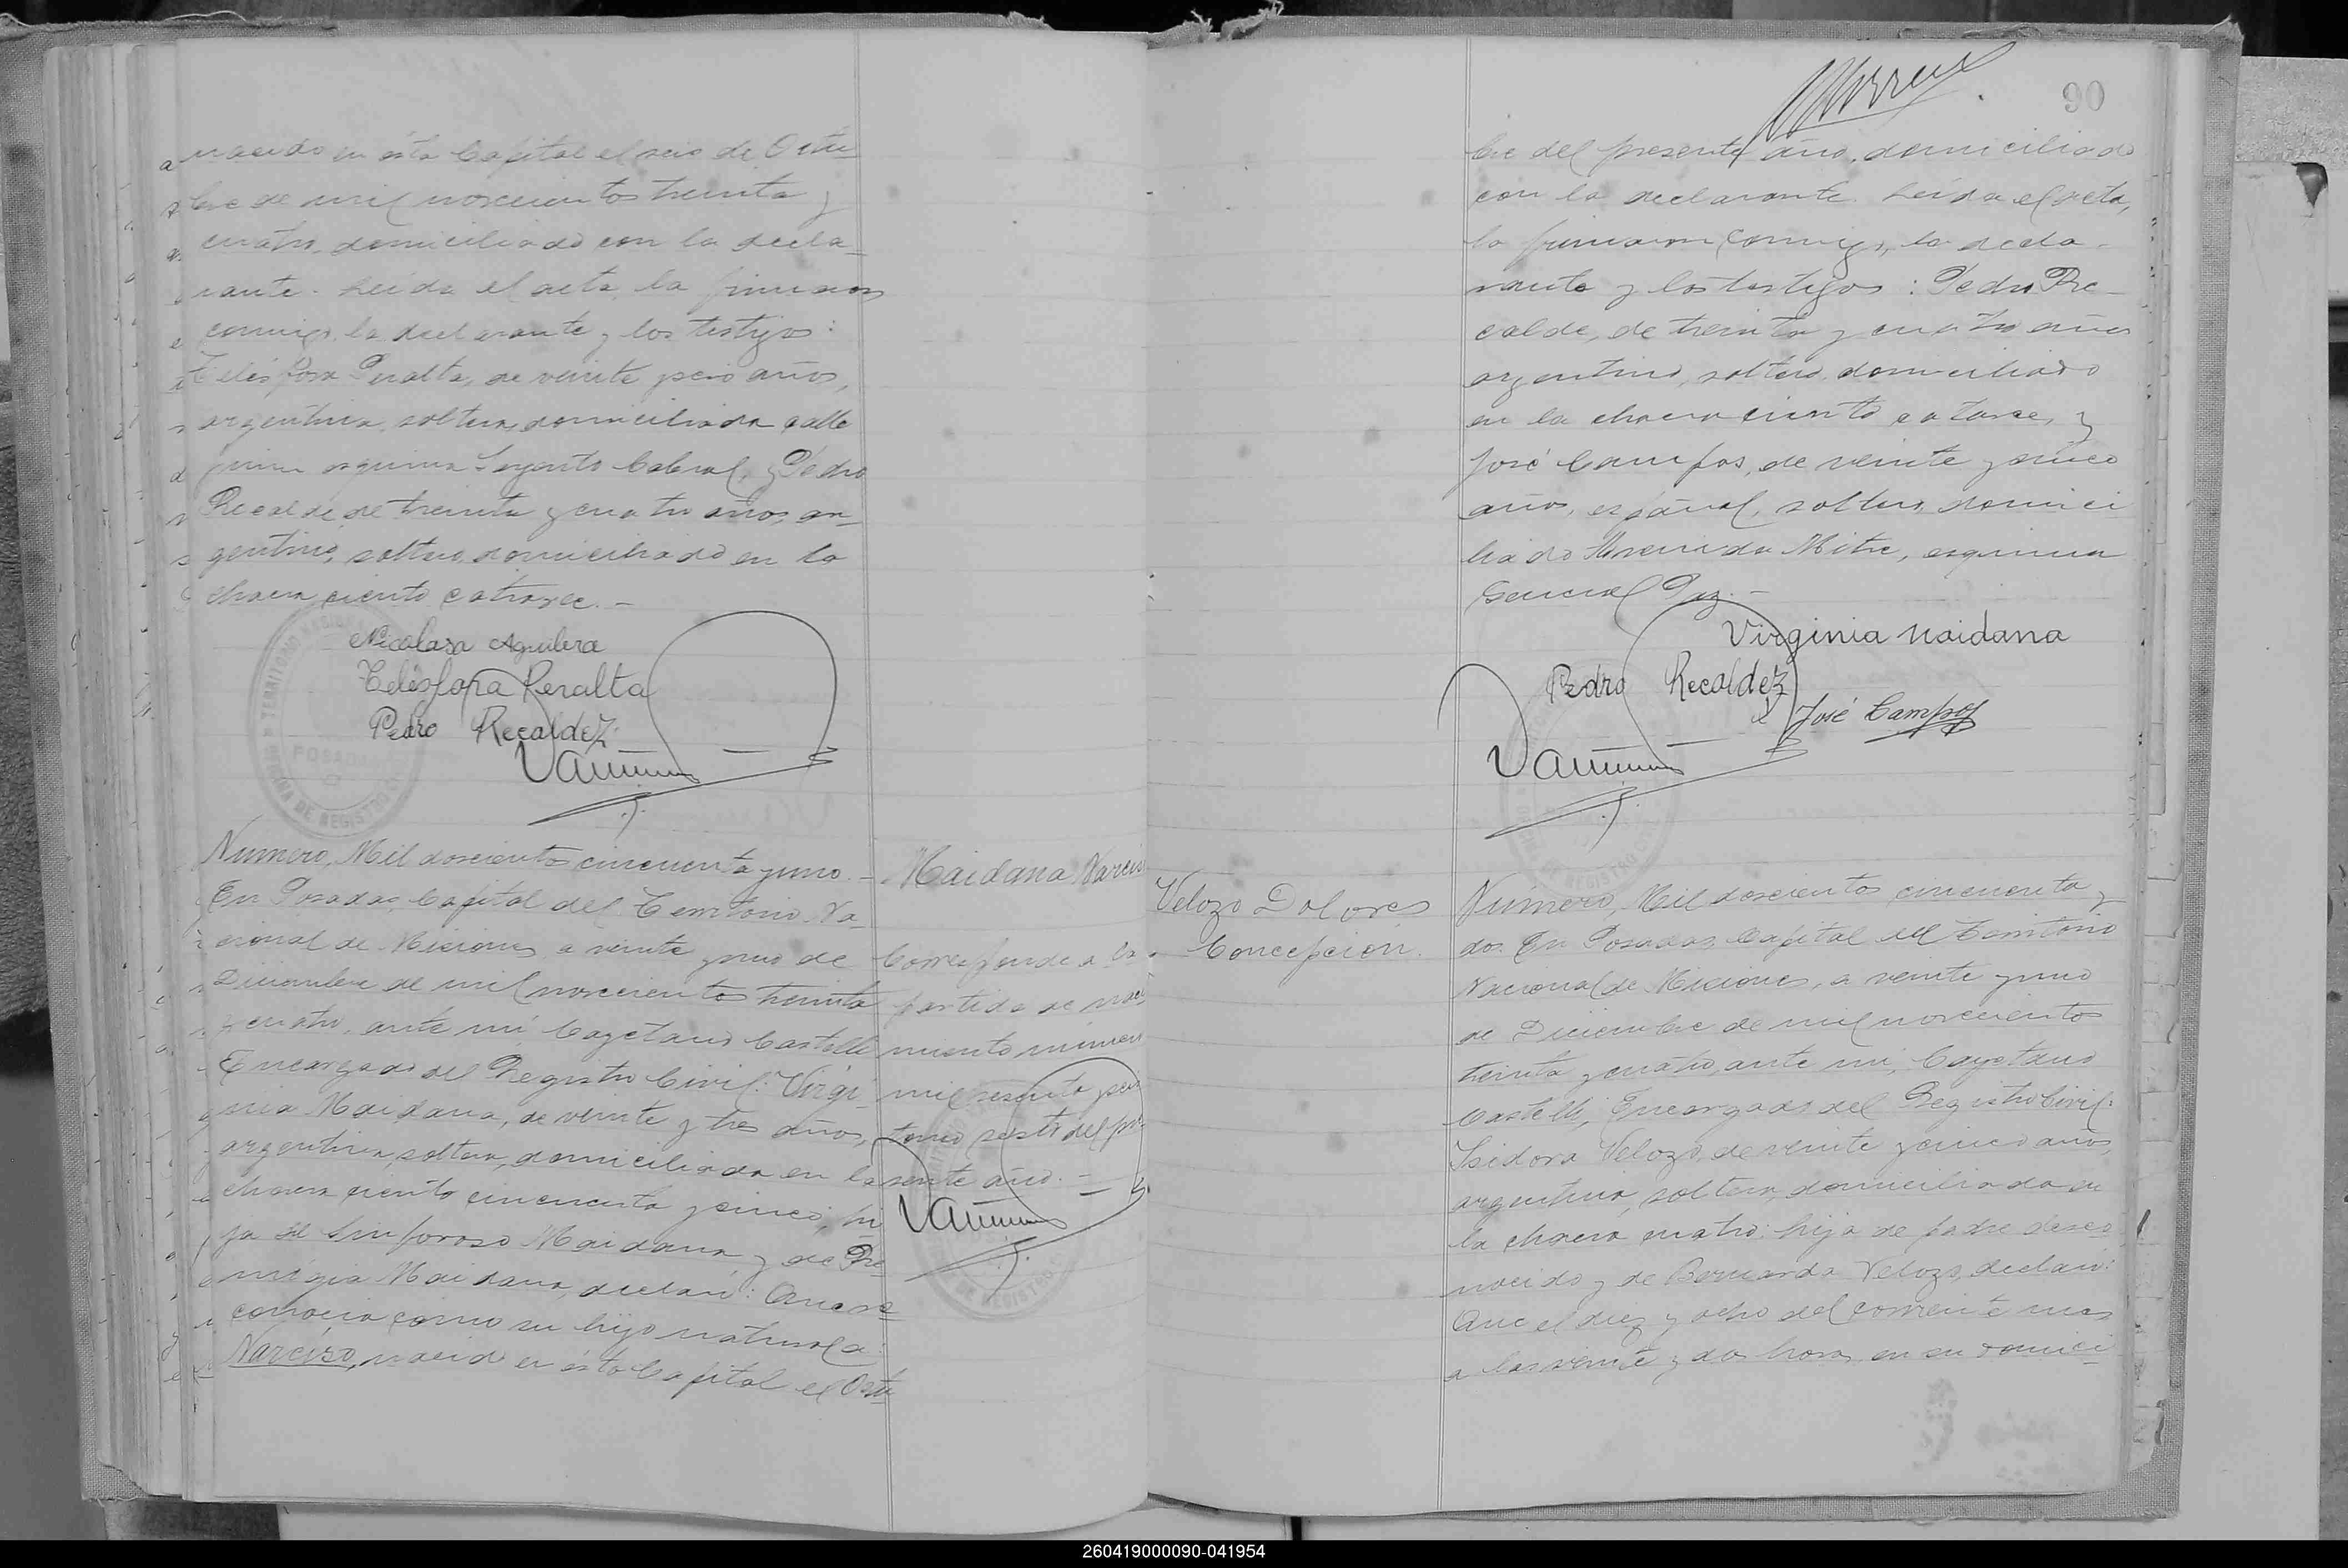 nacido en ésta Capital el seis de Octu-
bre de mil novecientos treinta y
cuatro, domiciliado con la decla-
rante. Leída el acta, la firmaron
conmigo, la declarante y los testigos:
Telésfora Peralta, de veinte y seis años,
argentina, soltera, domiciliada calle
esquina Sargento Cabral, y Pedro
Recalde, de treinta y cuatro años, ar-
gentino, soltero, domiciliado en la
chacra ciento catorce.-
Nicolasa Aguilera
Telésfora Peralta
Pedro Recaldez
TERRITORIO
POSADAS
OFICINA DE REGISTRO
Número, Mil doscientos cincuenta y uno.-
En Posadas, Capital del Territorio Na-
cional de Misiones, a veinte y uno de
Diciembre de mil novecientos treinta
y cuatro, ante mí, Cayetano Castelli
Encargado del Registro Civil: Virgi-
nia Maidana, de veinte y tres años,
argentina, soltera, domiciliada en la
chacra ciento cincuenta y cinco, hi
ja de Sinforoso Maidana y de Re-
migia Maidana, declaró: Que re-
conocía como su hijo natural a:
Narciso, nacido en ésta Capital el Octu-
Maidana Narciso
Corresponde a la
partida de naci
miento número
mil sesenta y seis
tomo sexto del pre
sente año.-
DE REGISTRO
90
bre del presente año, domiciliado
con la declarante. Leída el acta,
la firmaron conmigo, la decla-
rante y los testigos: Pedro Re-
calde, de treinta y cuatro años
argentino, soltero, domiciliado
en la chacra ciento catorce, y
José Campos, de veinte y cinco
años, español, soltero, domici
liado Avenida Mitre, esquina
General Paz.-
Virginia Maidana
Pedro Recaldez
José Campos
DE REGISTRO
Velozo Dolores
Concepción.
Número, Mil doscientos cincuenta y
dos. En Posadas, Capital del Territorio
Nacional de Misiones, a veinte y uno
de Diciembre de mil novecientos
treinta y cuatro, ante mí, Cayetano
Castelli, Encargado del Registro Civil:
Isidora Velozo, de veinte y cinco años,
argentina, soltera, domiciliada en
la chacra cuatro, hija de padre desco
nocido y de Bernarda Velozo, declaró:
Que el diez y ocho del corriente mes
a las veinte y dos horas, en su domici-
260419000090-041954